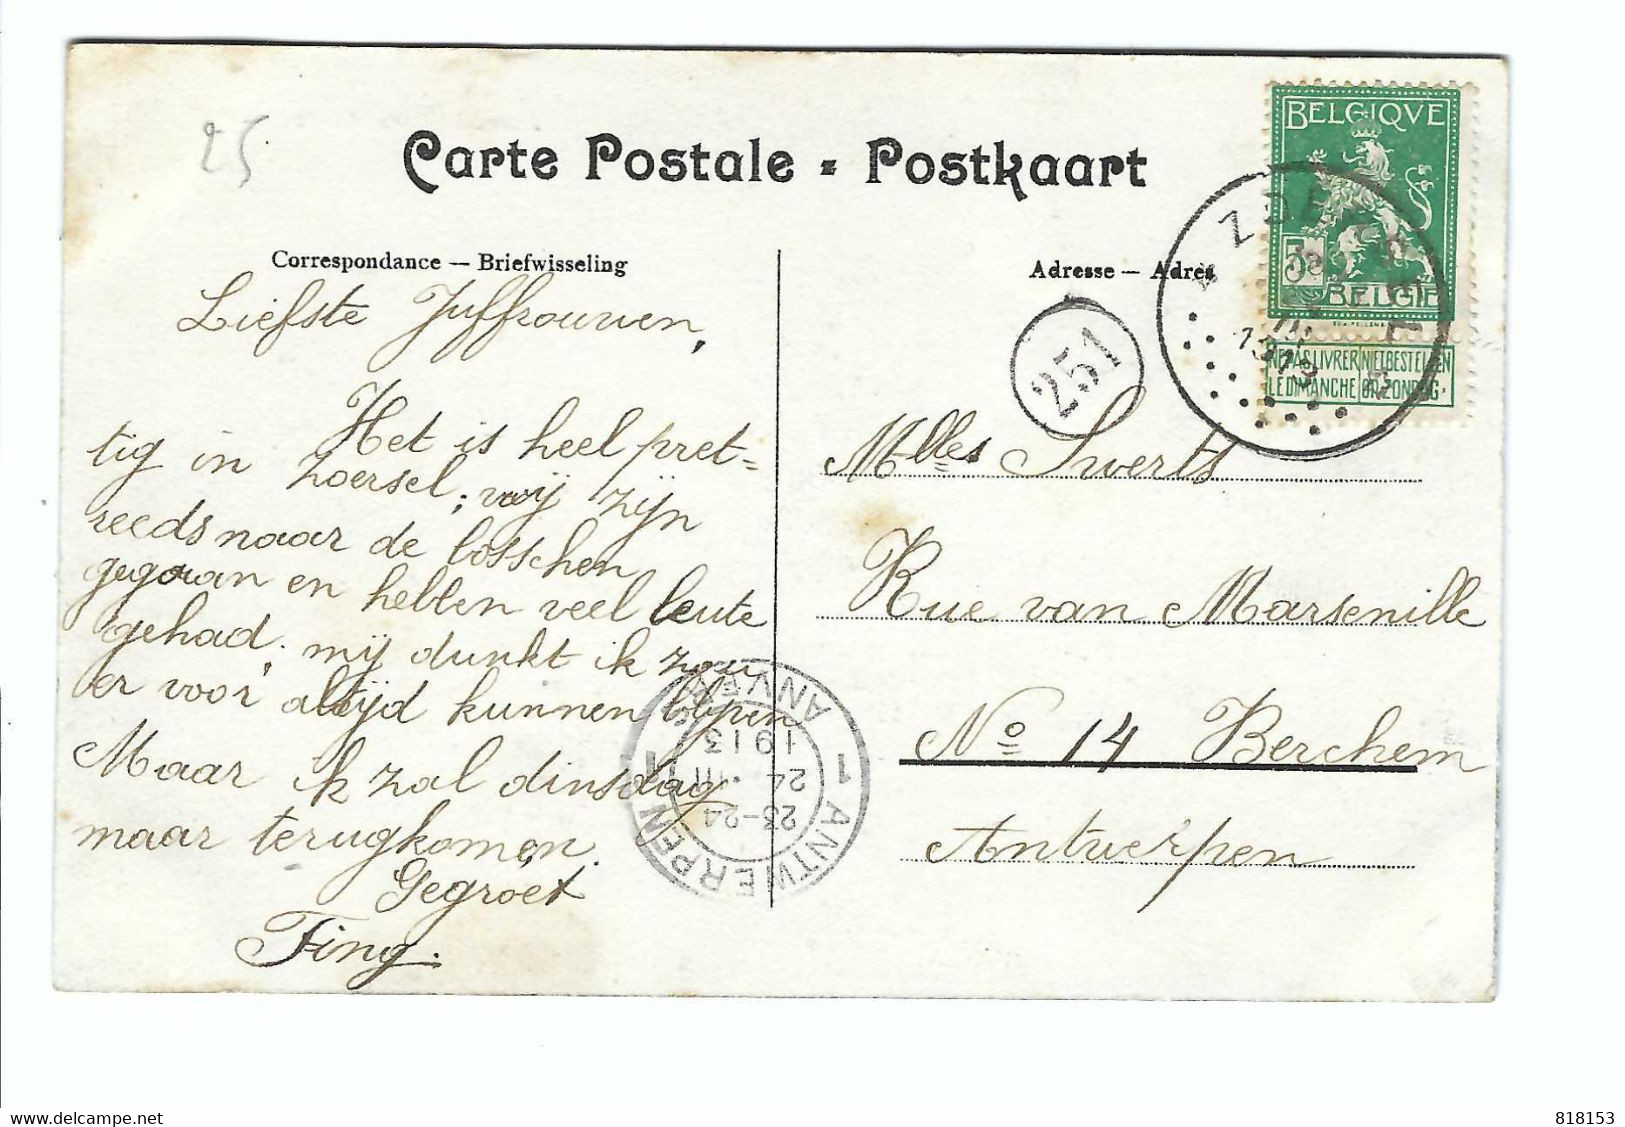 25
Carte Postale - Postkaart
Correspondance — Briefwisseling
Adresse — Adres
BELGIQVE
5c
BELGIE
NE PAS LIVRER NIET BESTELLEN
LE DIMANCHE OP ZONDAG.
ZOERSEL
1913
251
Liefste Juffrouwen,
Het is heel pret=
tig in Zoersel, wij zijn
reeds naar de bosschen
gegaan en hebben veel leute
gehad, mij dunkt ik zou
er voor altijd kunnen blijpen
Maar ik zal dinsdag
maar terugkomen.
Gegroet
Fing.
1 ANTWERPEN 1 ANVERS
23-24
24 III
1913
Mlles Swerts
Rue van Marsenille
No 14 Berchem
Antwerpen
www.delcampe.net
Kikihn
818153